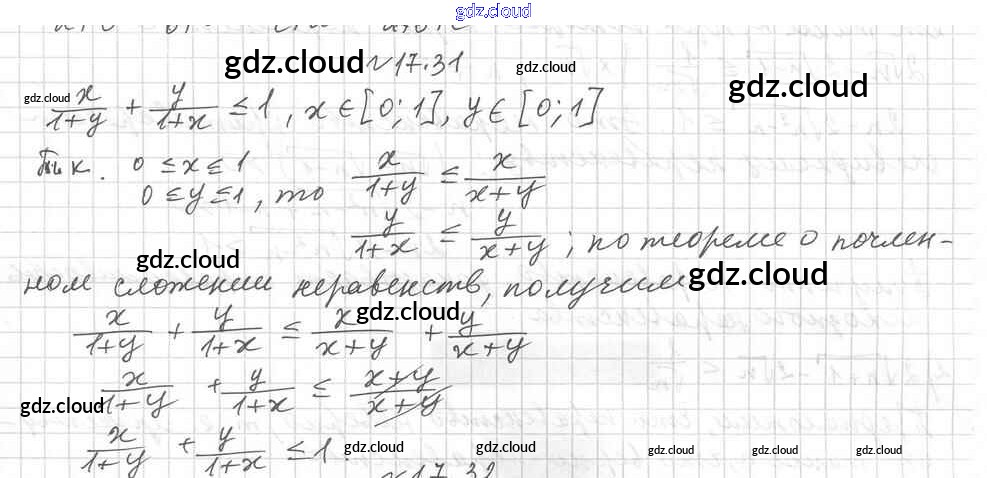 gdz.cloud
gdz.cloud N17.31 gdz.cloud gdz.cloud
gdz.cloud x/(1+y) + y/(1+x) ≤ 1, x ∈ [0; 1], y ∈ [0; 1]
Т.к. 0 ≤ x ≤ 1
0 ≤ y ≤ 1, то x/(1+y) ≤ x/(x+y)
y/(1+x) ≤ y/(x+y); по теореме о почлен-
gdz.cloud
ном сложении неравенств, получим gdz.cloud
gdz.cloud
x/(1+y) + y/(1+x) ≤ x/(x+y) + y/(x+y)
gdz.cloud x/(1+y) + y/(1+x) ≤ (x+y)/(x+y)
x/(1+y) + y/(1+x) ≤ 1. gdz.cloud gdz.cloud gdz.cloud gdz.cloud gdz.cloud
N17.32